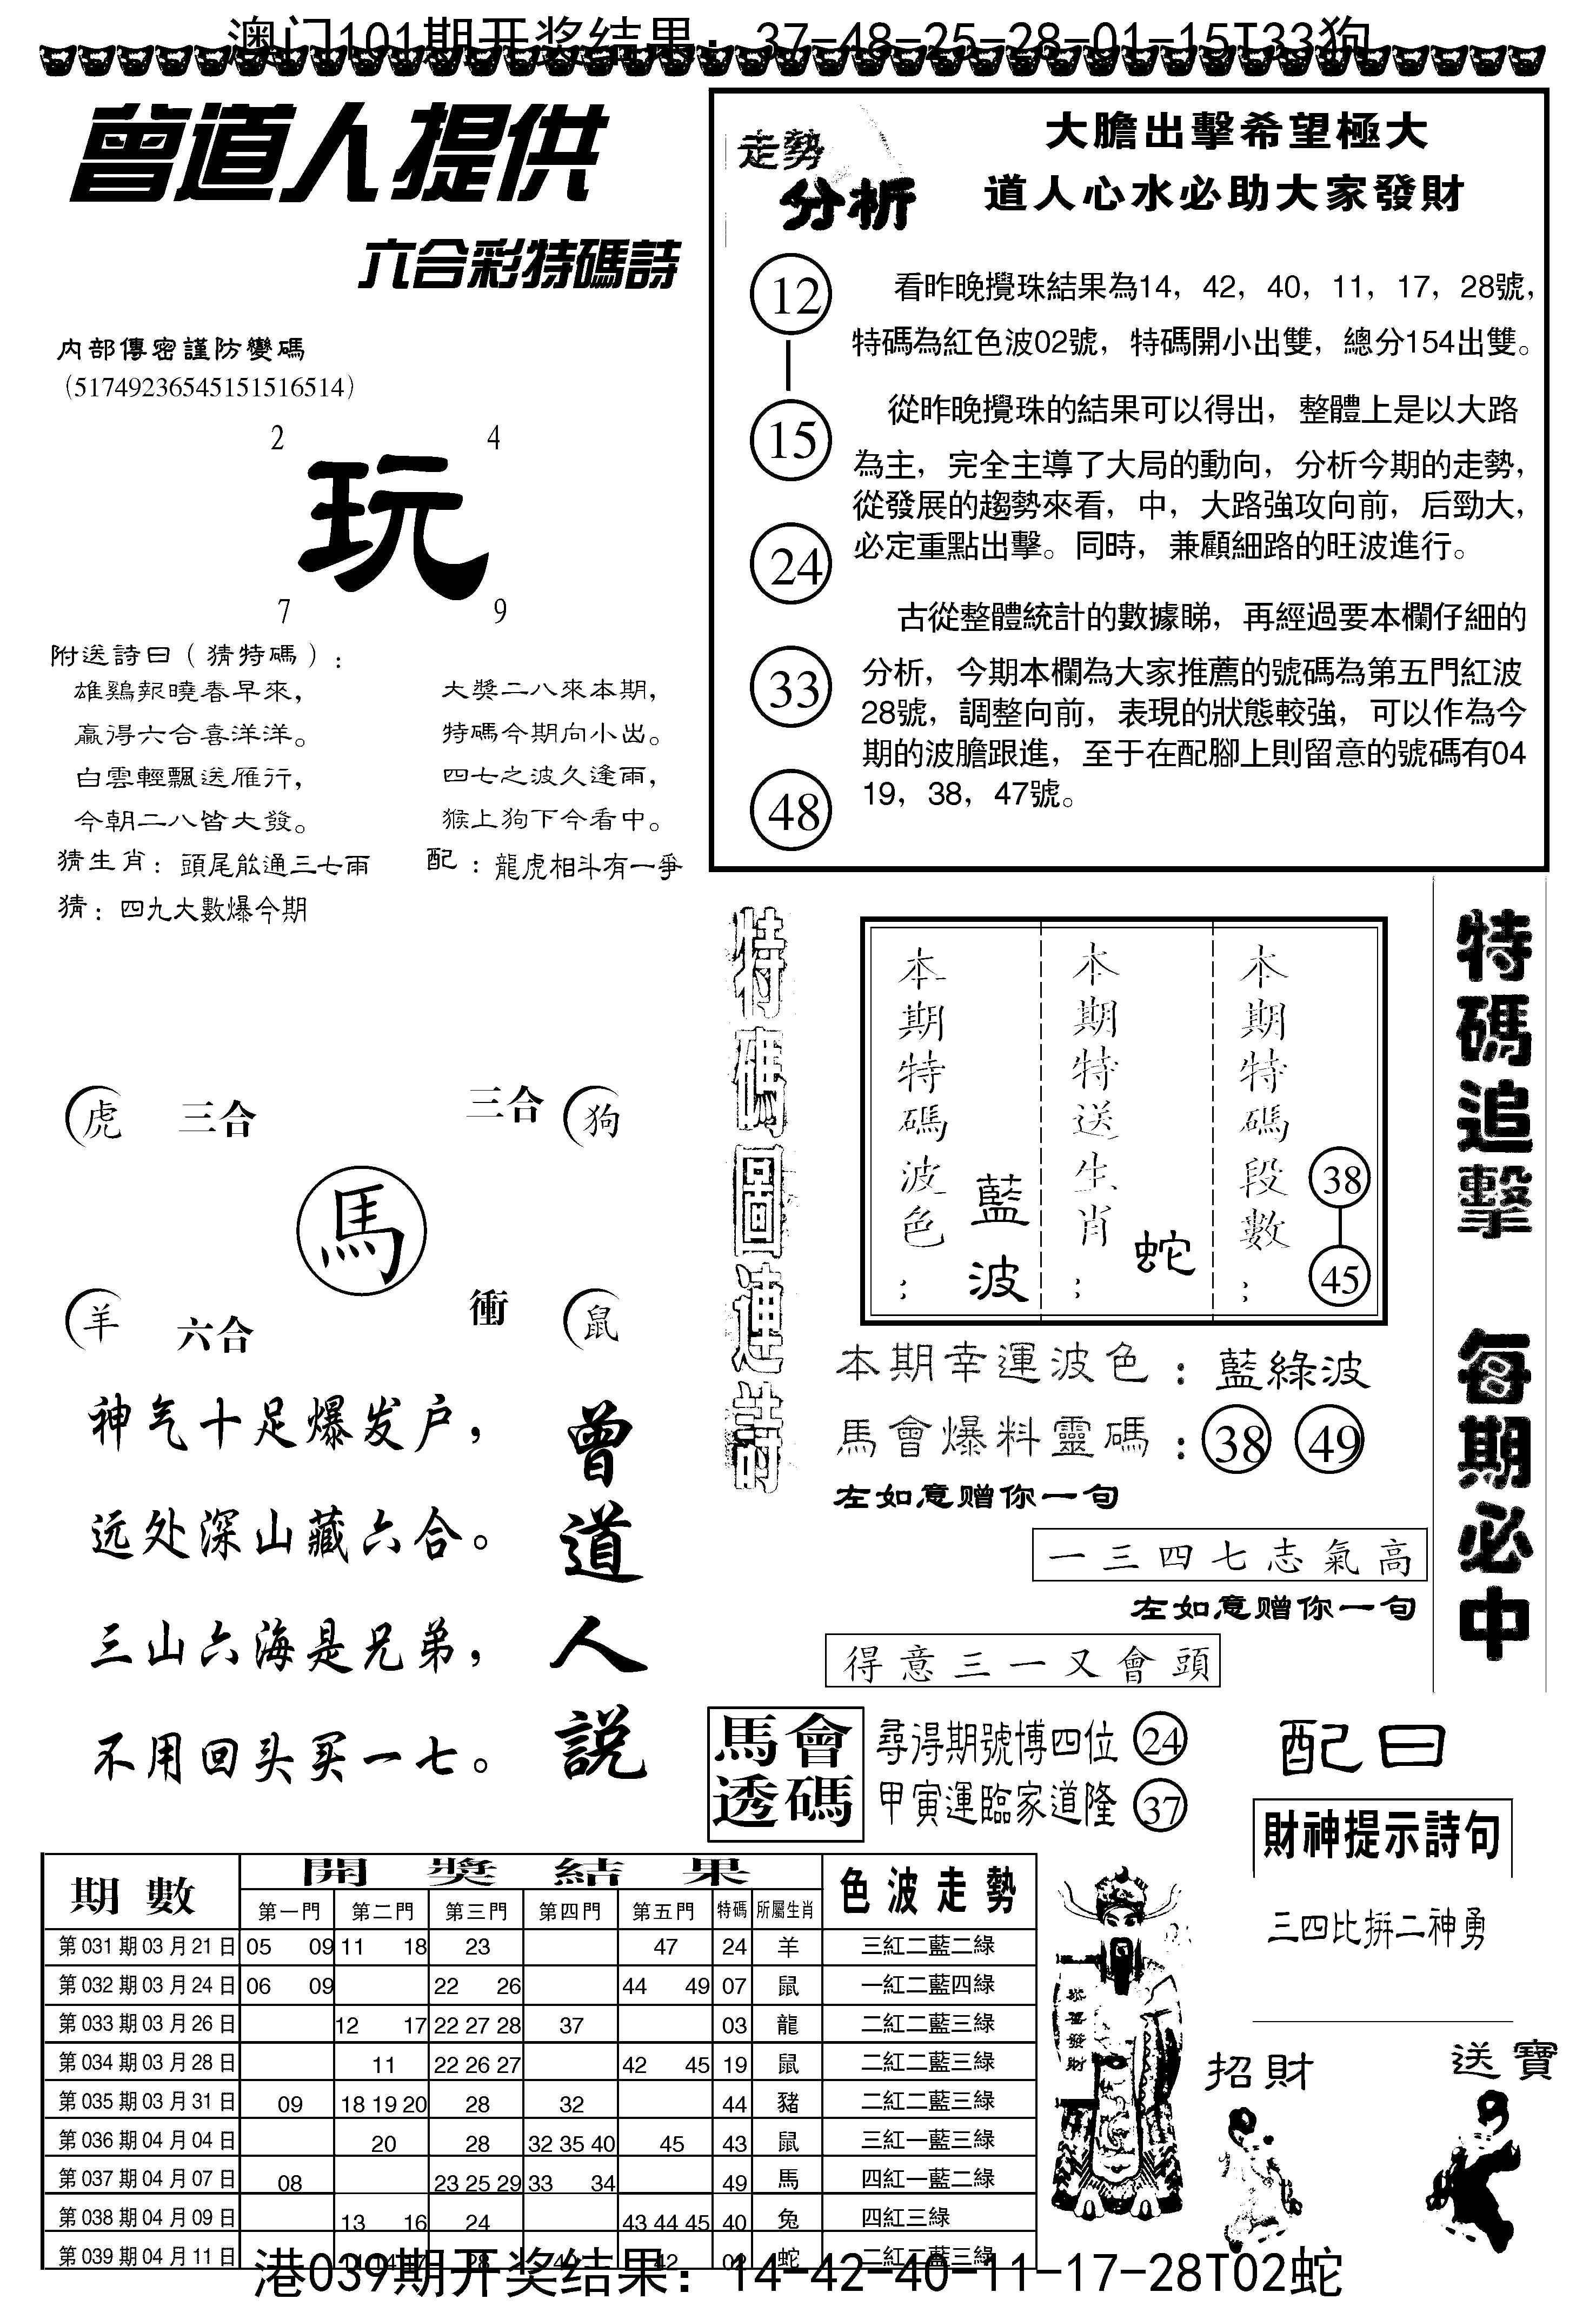 澳门101期开奖结果：37-48-25-28-01-15T33狗
曾道人提供
六合彩特碼詩
内部傳密謹防變碼
（51749236545151516514）
2 4
玩
7 9
附送詩曰（猜特碼）:
雄鷄報曉春早來，
贏得六合喜洋洋。
白雲輕飄送雁行，
今朝二八皆大發。
大獎二八來本期，
特碼今期向小出。
四七之波久逢雨，
猴上狗下今看中。
猜生肖：頭尾能通三七兩
配：龍虎相斗有一爭
猜：四九大數爆今期
走勢
分析
大膽出擊希望極大
道人心水必助大家發財
12
15
24
33
48
看昨晚攪珠結果為14，42，40，11，17，28號，
特碼為紅色波02號，特碼開小出雙，總分154出雙。
從昨晚攪珠的結果可以得出，整體上是以大路
為主，完全主導了大局的動向，分析今期的走勢，
從發展的趨勢來看，中，大路強攻向前，后勁大，
必定重點出擊。同時，兼顧細路的旺波進行。
古從整體統計的數據睇，再經過要本欄仔細的
分析，今期本欄為大家推薦的號碼為第五門紅波
28號，調整向前，表現的狀態較強，可以作為今
期的波膽跟進，至于在配腳上則留意的號碼有04
19，38，47號。
虎 三合 三合 狗
馬
羊 六合 衝 鼠
神气十足爆发户，
远处深山藏六合。
三山六海是兄弟，
不用回头买一七。
曾道人説
特碼圖連詩
本期特碼波色；
藍波
本期特送生肖；
蛇
本期特碼段數；
38
45
本期幸運波色：藍綠波
馬會爆料靈碼：38 49
左如意赠你一句
一三四七志氣高
左如意赠你一句
得意三一又會頭
特碼追擊 每期必中
馬會
透碼
尋得期號博四位 24
甲寅運臨家道隆 37
配曰
財神提示詩句
三四比拚二神勇
招財
送寶
恭喜發財
期數 開獎結果 色波走勢
第一門 第二門 第三門 第四門 第五門 特碼 所屬生肖
第031期03月21日 05 09 11 18 23 47 24 羊 三紅二藍二綠
第032期03月24日 06 09 22 26 44 49 07 鼠 一紅二藍四綠
第033期03月26日 12 17 22 27 28 37 03 龍 二紅二藍三綠
第034期03月28日 11 22 26 27 42 45 19 鼠 二紅二藍三綠
第035期03月31日 09 18 19 20 28 32 44 豬 二紅二藍三綠
第036期04月04日 20 28 32 35 40 45 43 鼠 三紅一藍三綠
第037期04月07日 08 23 25 29 33 34 49 馬 四紅一藍二綠
第038期04月09日 13 16 24 43 44 45 40 兔 四紅三綠
第039期04月11日 28 42 蛇 二紅二藍三綠
港039期开奖结果：14-42-40-11-17-28T02蛇